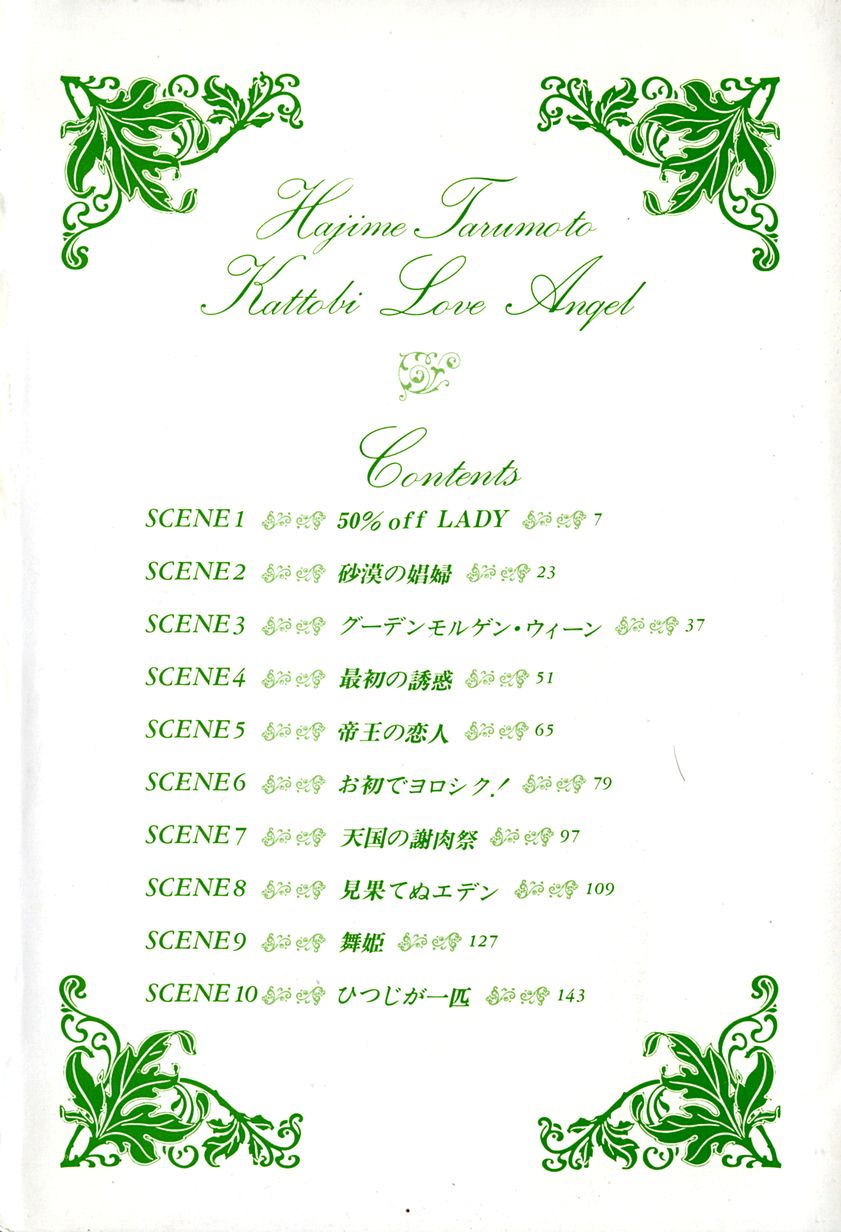 Hajime Tarumoto
Kattobi Love Angel
Contents
SCENE1 50% off LADY 7
SCENE2 砂漠の娼婦 23
SCENE3 グーデンモルゲン・ウィーン 37
SCENE4 最初の誘惑 51
SCENE5 帝王の恋人 65
SCENE6 お初でヨロシク! 79
SCENE7 天国の謝肉祭 97
SCENE8 見果てぬエデン 109
SCENE9 舞姫 127
SCENE10 ひつじが一匹 143